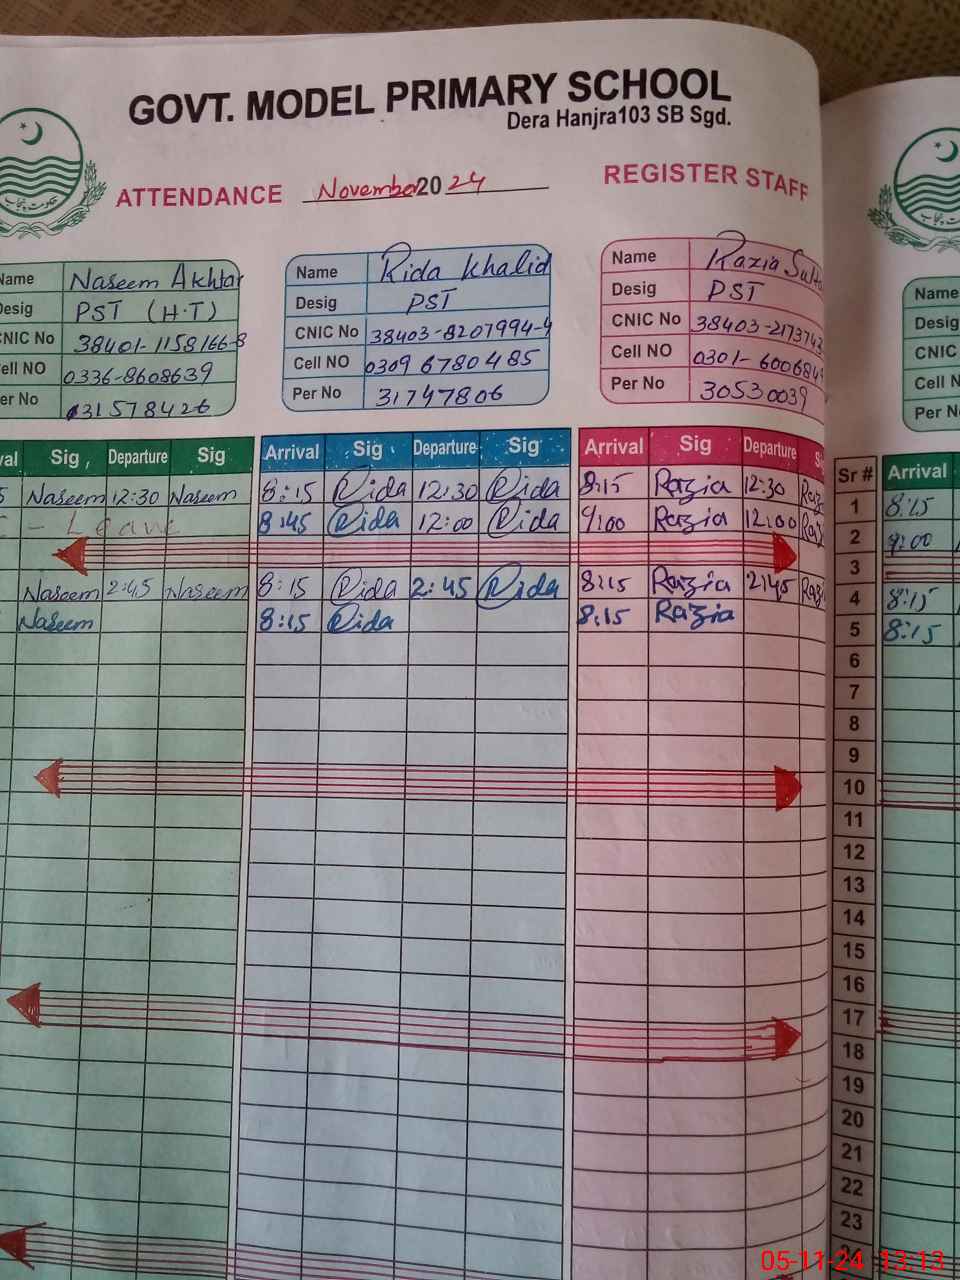 GOVT. MODEL PRIMARY SCHOOL
Dera Hanjra103 SB Sgd.
ATTENDANCE November 2024 REGISTER STAFF
حکومت پنجاب
Name Naseem Akhtar
Desig PST (H.T)
CNIC No 38401-1158166-8
Cell NO 0336-8608639
Per No 31578426
Name Rida Khalid
Desig PST
CNIC No 38403-8207994-4
Cell NO 0309 6780485
Per No 31747806
Name Razia
Desig PST
CNIC No 38403-217374
Cell NO 0301-600684
Per No 30530039
Name
Desig
CNIC
Cell N
Per N
val Sig, Departure Sig Arrival Sig Departure Sig Arrival Sig Departure Sr # Arrival
5 Naseem 12:30 Naseem 8:15 Rida 12:30 Rida 8:15 Razia 12:30 1 8:15
- Leave 8:45 Rida 12:00 Rida 9:00 Razia 12:00 2 9:00
3
Naseem 2:45 Naseem 8:15 Rida 2:45 Rida 8:15 Razia 2:45 4 8:15
Naseem 8:15 Rida 8:15 Razia 5 8:15
6
7
8
9
10
11
12
13
14
15
16
17
18
19
20
21
22
23
24
05-11-24 13:13